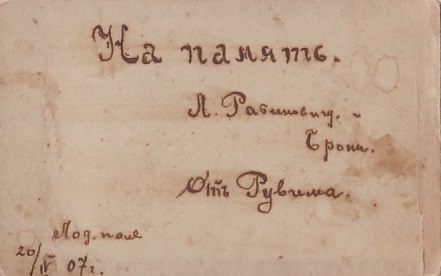 На память.
Л. Рабиновичу. и
Брони.
Отъ Рувима.
Лод. поле
20/IV 07 г.